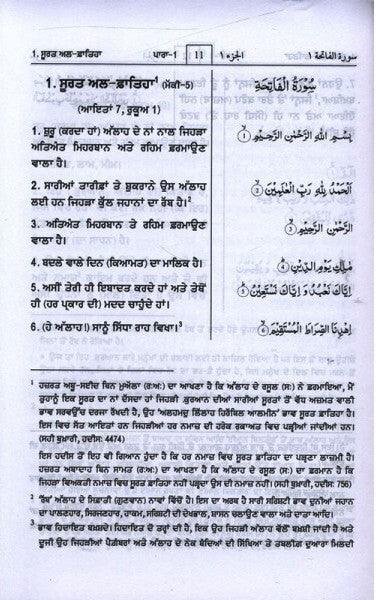 1. ਸੂਰਤ ਅਲ-ਫ਼ਾਤਿਹਾ ਪਾਰਾ-1 11 الجزء ١ سورة الفاتحة ١
1. ਸੂਰਤ ਅਲ-ਫ਼ਾਤਿਹਾ¹ (ਮੱਕੀ-5)
(ਆਇਤਾਂ 7, ਰੁਕੂਅ 1)
سُوْرَةُ الْفَاتِحَةِ
1. ਸ਼ੁਰੂ (ਕਰਦਾ ਹਾਂ) ਅੱਲਾਹ ਦੇ ਨਾਂ ਨਾਲ ਜਿਹੜਾ
ਅਤਿਅੰਤ ਮਿਹਰਬਾਨ ਅਤੇ ਰਹਿਮ ਫ਼ਰਮਾਉਣ
ਵਾਲਾ ਹੈ।
بِسْمِ اللّٰهِ الرَّحْمٰنِ الرَّحِيْمِ ①
2. ਸਾਰੀਆਂ ਤਾਰੀਫ਼ਾਂ ਤੇ ਸ਼ੁਕਰਾਨੇ ਉਸ ਅੱਲਾਹ
ਲਈ ਹਨ ਜਿਹੜਾ ਕੁੱਲ ਜਹਾਨਾਂ ਦਾ ਰੱਬ ਹੈ।²
اَلْحَمْدُ لِلّٰهِ رَبِّ الْعٰلَمِيْنَ ②
3. ਅਤਿਅੰਤ ਮਿਹਰਬਾਨ ਤੇ ਰਹਿਮ ਫ਼ਰਮਾਉਣ
ਵਾਲਾ ਹੈ।
الرَّحْمٰنِ الرَّحِيْمِ ③
4. ਬਦਲੇ ਵਾਲੇ ਦਿਨ (ਕਿਆਮਤ) ਦਾ ਮਾਲਿਕ ਹੈ।
مٰلِكِ يَوْمِ الدِّيْنِ ④
5. ਅਸੀਂ ਤੇਰੀ ਹੀ ਇਬਾਦਤ ਕਰਦੇ ਹਾਂ ਅਤੇ ਤੇਥੋਂ
ਹੀ (ਹਰ ਪ੍ਰਕਾਰ ਦੀ) ਮਦਦ ਚਾਹੁੰਦੇ ਹਾਂ।
اِيَّاكَ نَعْبُدُ وَ اِيَّاكَ نَسْتَعِيْنُ ⑤
6. (ਹੇ ਅੱਲਾਹ!) ਸਾਨੂੰ ਸਿੱਧਾ ਰਾਹ ਵਿਖਾ।³
اِهْدِنَا الصِّرَاطَ الْمُسْتَقِيْمَ ⑥
¹ ਹਜ਼ਰਤ ਅਬੂ-ਸਈਦ ਬਿਨ ਮੁਅੱਲਾ (ਰ:ਅ:) ਦਾ ਆਖਣਾ ਹੈ ਕਿ ਅੱਲਾਹ ਦੇ ਰਸੂਲ (ਸ:) ਨੇ ਫ਼ਰਮਾਇਆ, ਮੈਂ
ਤੁਹਾਨੂੰ ਇਕ ਸੂਰਤ ਦਾ ਨਾਂ ਦੱਸਦਾ ਹਾਂ ਜਿਹੜੀ .ਕੁਰਆਨ ਦੀਆਂ ਸਾਰੀਆਂ ਸੂਰਤਾਂ ਤੋਂ ਵੱਧ ਅਜ਼ਮਤ ਵਾਲੀ
ਭਾਵ ਸਰਵਉੱਚ ਦਰਜਾ ਰੱਖਦੀ ਹੈ, ਉਹ ‘ਅਲਹਮਦੁ ਲਿੱਲਾਹ ਹਿਰੱਬਿਲ ਆਲਮੀਨ’ ਭਾਵ ਸੂਰਤ ਫ਼ਾਤਿਹਾ ਹੈ।
ਇਸ ਵਿਚ ਸੱਤ ਆਇਤਾਂ ਹਨ ਜਿਹੜੀਆਂ ਹਰ ਨਮਾਜ਼ ਦੀ ਹਰੇਕ ਰਕਾਅਤ ਵਿਚ ਪੜ੍ਹੀਆਂ ਜਾਂਦੀਆਂ ਹਨ।
(ਸਹੀ ਬੁਖ਼ਾਰੀ, ਹਦੀਸ: 4474)
ਇਸ ਹਦੀਸ ਤੋਂ ਇਹ ਵੀ ਗਿਆਨ ਹੁੰਦਾ ਹੈ ਕਿ ਹਰ ਨਮਾਜ਼ ਵਿਚ ਸੂਰਤ ਫ਼ਾਤਿਹਾ ਦਾ ਪੜ੍ਹਣਾ ਲਾਜ਼ਮੀ ਹੈ।
ਹਜ਼ਰਤ ਅਬਾਦਾਹ ਬਿਨ ਸਾਮਤ (ਰ:ਅ:) ਦਾ ਆਖਣਾ ਹੈ ਕਿ ਅੱਲਾਹ ਦੇ ਰਸੂਲ (ਸ:) ਦਾ ਫ਼ਰਮਾਨ ਹੈ ਕਿ
ਜਿਹੜਾ ਵਿਅਕਤੀ ਨਮਾਜ਼ ਵਿਚ ਸੂਰਤ ਫ਼ਾਤਿਹਾ ਨਹੀਂ ਪੜ੍ਹਦਾ ਉਸ ਦੀ ਨਮਾਜ਼ ਨਹੀਂ। (ਸਹੀ ਬੁਖ਼ਾਰੀ, ਹਦੀਸ: 756)
² ‘ਰੱਬ’ ਅੱਲਾਹ ਦੇ ਸਿਫ਼ਾਤੀ (ਗੁਣਵਾਨ) ਨਾਵਾਂ ਵਿੱਚੋਂ ਹੈ। ਇਸ ਦਾ ਅਰਥ ਹੈ ਸਾਰੀ ਸਰਿਸ਼ਟੀ ਭਾਵ ਦੁਨੀਆਂ ਜਹਾਨ
ਦਾ ਪਾਲਣਹਾਰ, ਸਿਰਜਣਹਾਰ, ਹਾਕਮ, ਸਰਿਸ਼ਟੀ ਦੀ ਦੇਖਭਾਲ, ਸ਼ਾਸਨ ਚਲਾਉਣ ਵਾਲਾ ਅਤੇ ਦਾਤਾ ਆਦਿ।
³ ਭਾਵ ਹਿਦਾਇਤ ਬਖ਼ਸ਼ਦੇ। ਹਿਦਾਇਤ ਦੋ ਤਰ੍ਹਾਂ ਦੀ ਹੈ, ਇਕ ਉਹ ਜਿਹੜੀ ਅੱਲਾਹ ਵੱਲੋਂ ਬਖ਼ਸ਼ੀ ਜਾਂਦੀ ਹੈ ਅਤੇ
ਦੂਜੀ ਉਹ ਜਿਹੜੀਆਂ ਪੈਗ਼ੰਬਰਾਂ ਅਤੇ ਅੱਲਾਹ ਦੇ ਨੇਕ ਬੰਦਿਆਂ ਦੀ ਸਿੱਖਿਆ ਤੇ ਤਬਲੀਗ਼ ਦੁਆਰਾ ਮਿਲਦੀ